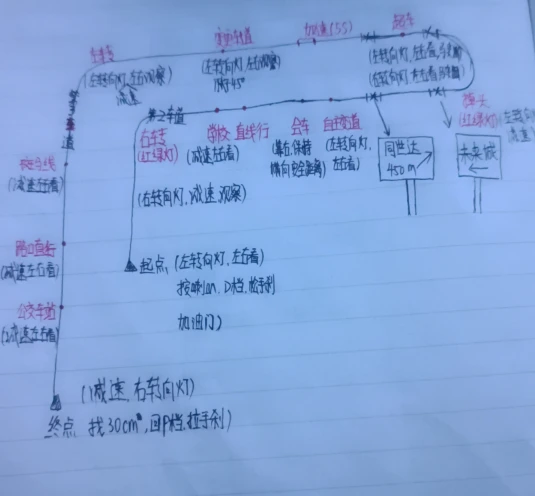 左转
(左转向灯,左右观察)
减速
变更车道
(左转向灯,左右观察)
加速(55)
超车
(左转向灯,左右看
(右转向灯,右右看
第2车道
右转
(红绿灯)
(右转向灯,减速,观察)
学校
直线行
(减速左右看)
会车
(靠右,保持
横向安全距离)
(左转向灯,
左右看)
掉头
(红绿灯)
左转向
减速)
同世达
450m
未来城
(减速左右看)
路口直行
(减速左右看)
公交车道
(减速左右看)
起点,(左转向灯,左右看)
按喇叭,D档,松手刹
加油门)
(减速,右转向灯)
终点 找30cm,回P档,拉手刹)